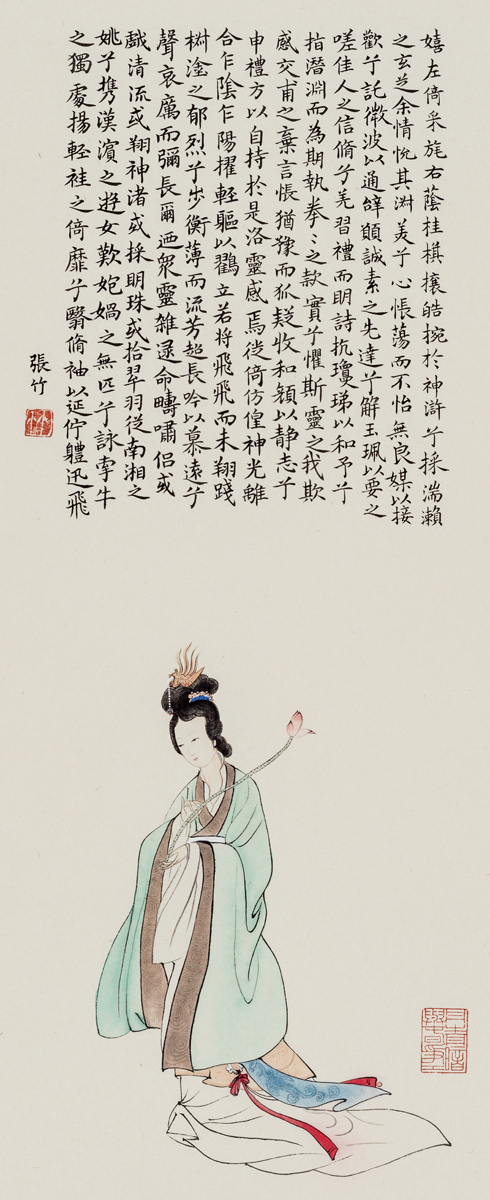 嬉左倚采旄右蔭桂棋攘皓捥於神滸兮採湍瀨
之玄芝余情悅其淑美兮心悵蕩而不怡無良媒以接
歡兮託微波以通辭願誠素之先達兮解玉珮以要之
嗟佳人之信脩兮羌習禮而明詩抗瓊珶以和予兮
指潛淵而為期執拳〻之款實兮懼斯靈之我欺
感交甫之棄言悵猶豫而狐疑收和顏以静志兮
申禮方以自持於是洛靈感焉徙倚仿偟神光離
合乍陰乍陽擢輕軀以鶴立若將飛飛而未翔踐
樹塗之郁烈兮步衡薄而流芳超長吟以慕遠兮
聲哀厲而彌長爾迺衆靈雜遝命疇嘯侶或
戲清流或翔神渚或採明珠或拾翠羽從南湘之
姚兮携漢濱之遊女歎匏媧之無匹兮詠牽牛
之獨處揚輕袿之倚靡兮翳脩袖以延佇軆迅飛
張竹